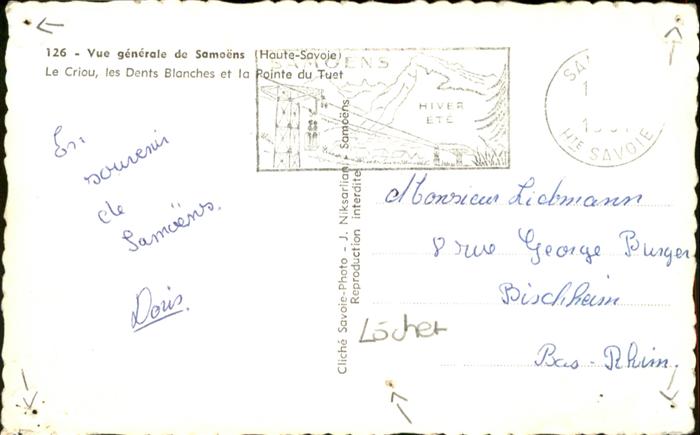 126 - Vue générale de Samoëns (Haute-Savoie)
Le Criou, les Dents Blanches et la Pointe du Tuet
SAMOENS
HIVER
ÉTÉ
HTE SAVOIE
En
souvenir
de
Samoëns.
Doris.
Cliché Savoie-Photo - J. Niksarlian - Samoëns
Reproduction interdite
Monsieur Liebmann
8 rue George Burger
Bischheim
Löcher
Bas-Rhim.